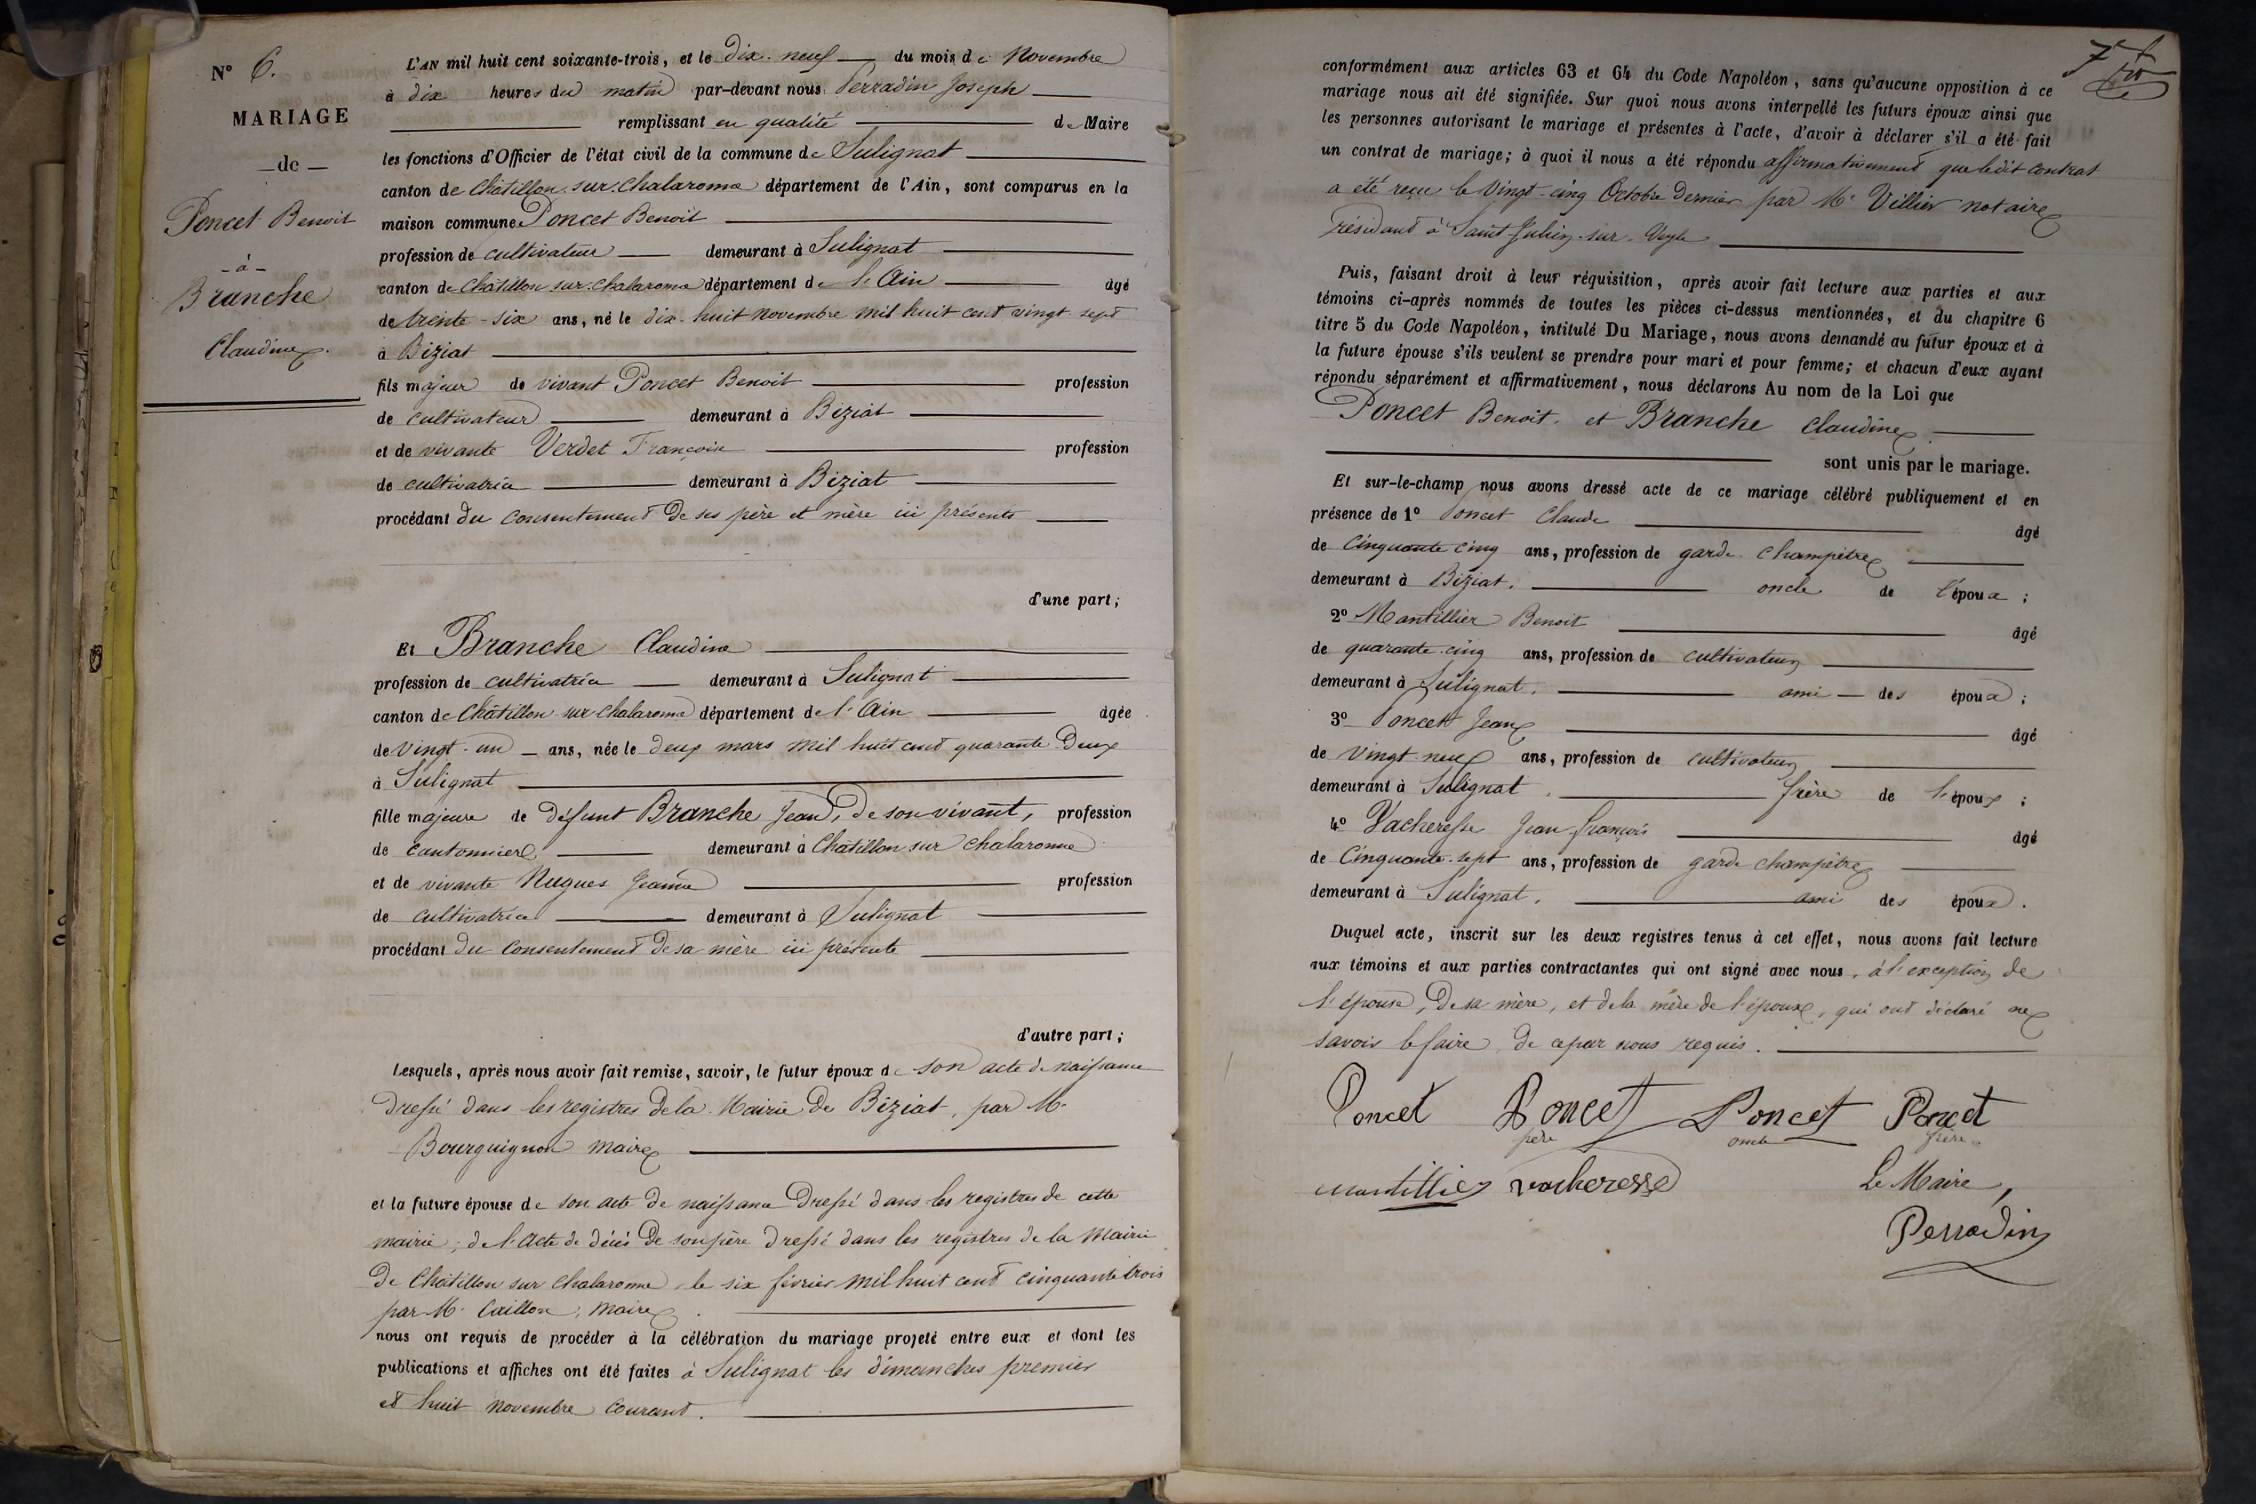 N° 6.
MARIAGE
de
Poncet Benoit
à
Branche
Claudine.
L'AN mil huit cent soixante-trois, et le dix-neuf du mois de Novembre
à dix heures du matin par-devant nous Perradin Joseph
remplissant en qualité de Maire
les fonctions d'Officier de l'état civil de la commune de Sulignat
canton de Châtillon-sur-Chalaronne département de l'Ain, sont comparus en la
maison commune Poncet Benoit
profession de cultivateur demeurant à Sulignat
canton de Châtillon-sur-Chalaronne département de l'Ain âgé
de trente-six ans, né le dix-huit novembre mil huit cent vingt-sept
à Biziat
fils majeur de vivant Poncet Benoit profession
de cultivateur demeurant à Biziat
et de vivante Verdet Françoise profession
de cultivatrice demeurant à Biziat
procédant du consentement de ses père et mère ici présents
d'une part;
Et Branche Claudine
profession de cultivatrice demeurant à Sulignat
canton de Châtillon-sur-Chalaronne département de l'Ain âgée
de vingt-un ans, née le deux mars mil huit cent quarante-deux
à Sulignat
fille majeure de défunt Branche Jean, de son vivant, profession
de cantonnier demeurant à Châtillon sur Chalaronne
et de vivante Nugues Jeanne profession
de cultivatrice demeurant à Sulignat
procédant du consentement de sa mère ici présente
d'autre part;
Lesquels, après nous avoir fait remise, savoir, le futur époux de son acte de naissance
dressé dans les registres de la Mairie de Biziat, par M.
Bourguignon maire
et la future épouse de son acte de naissance dressé dans les registres de cette
mairie; de l'acte de décès de son père dressé dans les registres de la Mairie
de Châtillon sur Chalaronne le six février mil huit cent cinquante trois
par M. Caillon, maire.
nous ont requis de procéder à la célébration du mariage projeté entre eux et dont les
publications et affiches ont été faites à Sulignat les dimanches premier
et huit novembre courant.
7e
conformément aux articles 63 et 64 du Code Napoléon, sans qu'aucune opposition à ce
mariage nous ait été signifiée. Sur quoi nous avons interpellé les futurs époux ainsi que
les personnes autorisant le mariage et présentes à l'acte, d'avoir à déclarer s'il a été fait
un contrat de mariage; à quoi il nous a été répondu affirmativement que ledit contrat
a été reçu le vingt-cinq Octobre dernier par Me Villier notaire
résidant à Saint-Julien-sur-Veyle
Puis, faisant droit à leur réquisition, après avoir fait lecture aux parties et aux
témoins ci-après nommés de toutes les pièces ci-dessus mentionnées, et du chapitre 6
titre 5 du Code Napoléon, intitulé Du Mariage, nous avons demandé au futur époux et à
la future épouse s'ils veulent se prendre pour mari et pour femme; et chacun d'eux ayant
répondu séparément et affirmativement, nous déclarons Au nom de la Loi que
Poncet Benoit et Branche Claudine
sont unis par le mariage.
Et sur-le-champ nous avons dressé acte de ce mariage célébré publiquement et en
présence de 1° Poncet Claude âgé
de cinquante cinq ans, profession de garde champêtre
demeurant à Biziat. oncle de l'époux;
2° Mantillier Benoit âgé
de quarante-cinq ans, profession de cultivateur
demeurant à Sulignat. ami des époux;
3° Poncet Jean âgé
de vingt-neuf ans, profession de cultivateur
demeurant à Sulignat. frère de l'époux;
4° Vacheresse Jean-François âgé
de cinquante-sept ans, profession de garde champêtre
demeurant à Sulignat. ami des époux.
Duquel acte, inscrit sur les deux registres tenus à cet effet, nous avons fait lecture
aux témoins et aux parties contractantes qui ont signé avec nous, à l'exception de
l'épouse, de sa mère, et de la mère de l'époux, qui ont déclaré ne
savoir le faire de ce par nous requis.
Poncet Poncet Poncet Poncet
père oncle frère
Mantillier vacheresse Le Maire,
Perradin